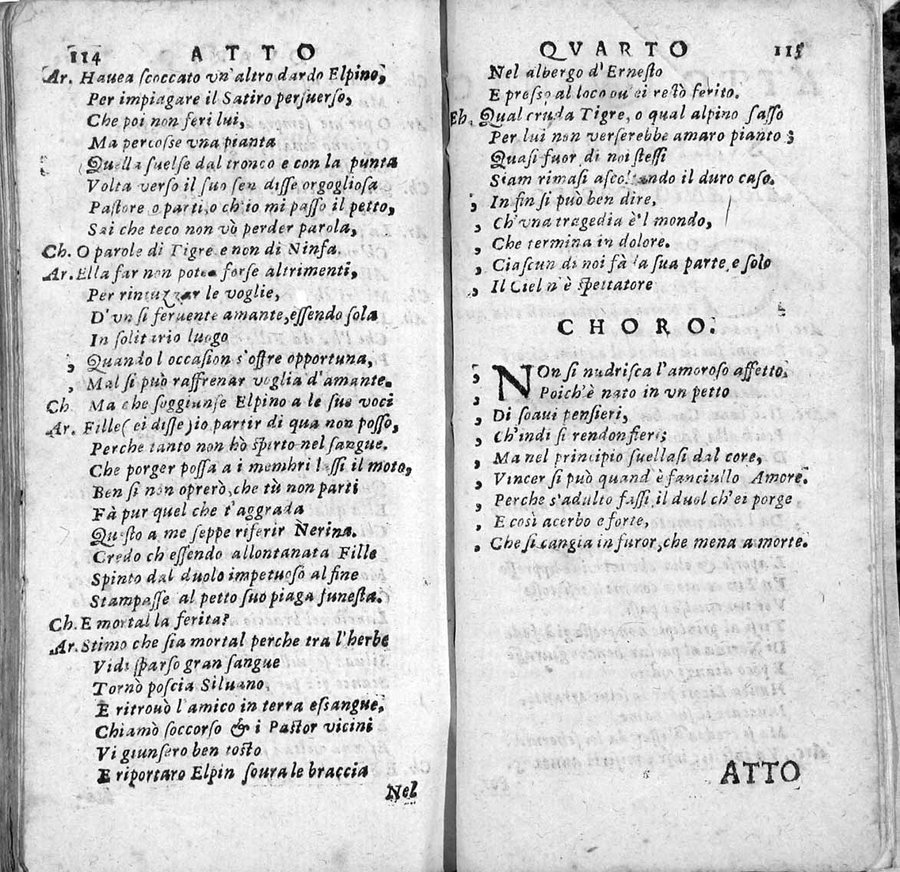 114 ATTO
Ar. Hauea ſcoccato vn'altro dardo Elpino,
Per impiagare il Satiro peruerſo,
Che poi non feri lui,
Ma percoſse vna pianta
Quella ſuelse dal tronco e con la punta
Volta verſo il ſuo ſen diſſe orgoglioſa
Paſtore o parti, o ch'io mi paſſo il petto,
Sai che teco non vò perder parola,
Ch. O parole di Tigre e non di Ninfa.
Ar. Ella far non potea forſe altrimenti,
Per rintuzzar le voglie,
D'vn ſi feruente amante, eſſendo ſola
In ſolitario luogo
, Quando l occaſion s'offre opportuna,
, Mal ſi può raffrenar voglia d'amante.
Ch. Ma che ſoggiunſe Elpino a le ſue voci
Ar. Fille (ei diſſe) io partir di qua non poſſo,
Perche tanto non hò ſpirto nel ſangue.
Che porger poſſa a i membri laſſi il moto,
Ben ſi non operò, che tù non parti
Fà pur quel che t'aggrada
Queſto a me ſeppe riferir Nerina.
Credo ch eſſendo allontanata Fille
Spinto dal duolo impetuoſo al fine
Stampaſſe al petto ſuo piaga funeſta.
Ch. E mortal la ferita?
Ar. Stimo che ſia mortal perche tra l'herbe
Vidi ſparſo gran ſangue
Tornò poſcia Siluano
E ritrouò l'amico in terra eſsangue,
Chiamò ſoccorſo & i Paſtor vicini
Vi giunſero ben toſto
E riportaro Elpin ſoura le braccia
Nel
QVARTO 115
Nel albergo d'Erneſto
E preſſo al loco ou' ei reſtò ferito.
Eh. Qual cruda Tigre, o qual alpino ſaſſo
Per lui non verſerebbe amaro pianto;
Quaſi fuor di noi steſſi
Siam rimaſi aſcoltando il duro caſo.
, In fin ſi può ben dire,
, Ch'vna tragedia è'l mondo,
, Che termina in dolore.
, Ciaſcun di noi fà la sua parte, e ſolo
, Il Ciel n'è ſpettatore
CHORO.
, NOn ſi nudriſca l'amoroſo affetto,
, Poich'è nato in vn petto
, Di ſoaui penſieri,
, Ch'indi ſi rendon fieri;
, Ma nel principio ſuellaſi dal core,
, Vincer ſi può quand'è fanciullo Amore.
, Perche s'adulto faſſi, il duol ch'ei porge
, E così acerbo e forte,
, Che ſi cangia in furor, che mena a morte.
ATTO